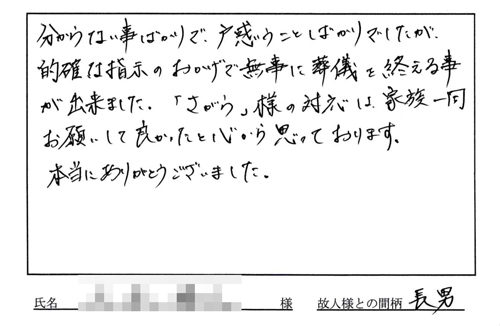 分からない事ばかりで、戸惑うことばかりでしたが、
的確な指示のおかげで無事に葬儀を終える事
が出来ました。「さがら」様の対応は、家族一同
お願いして良かったと心から思っております。
本当にありがとうございました。
氏名 様 故人様との間柄 長男